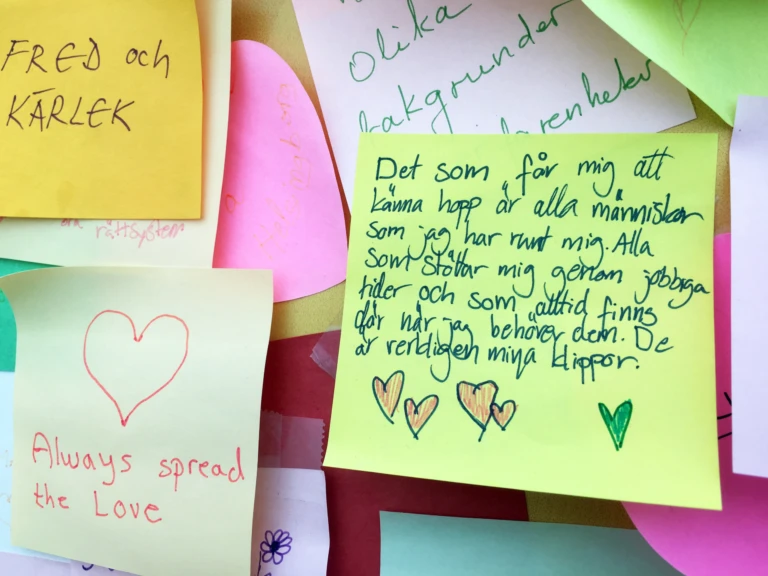 FRED och
KÄRLEK
rättsystem
Olika
bakgrunder
Det som får mig att
känna hopp är alla människor
som jag har runt mig. Alla
som stöttar mig genom jobbiga
tider och som alltid finns
där när jag behöver dem. De
är verkligen mina klippor.
Always spread
the Love